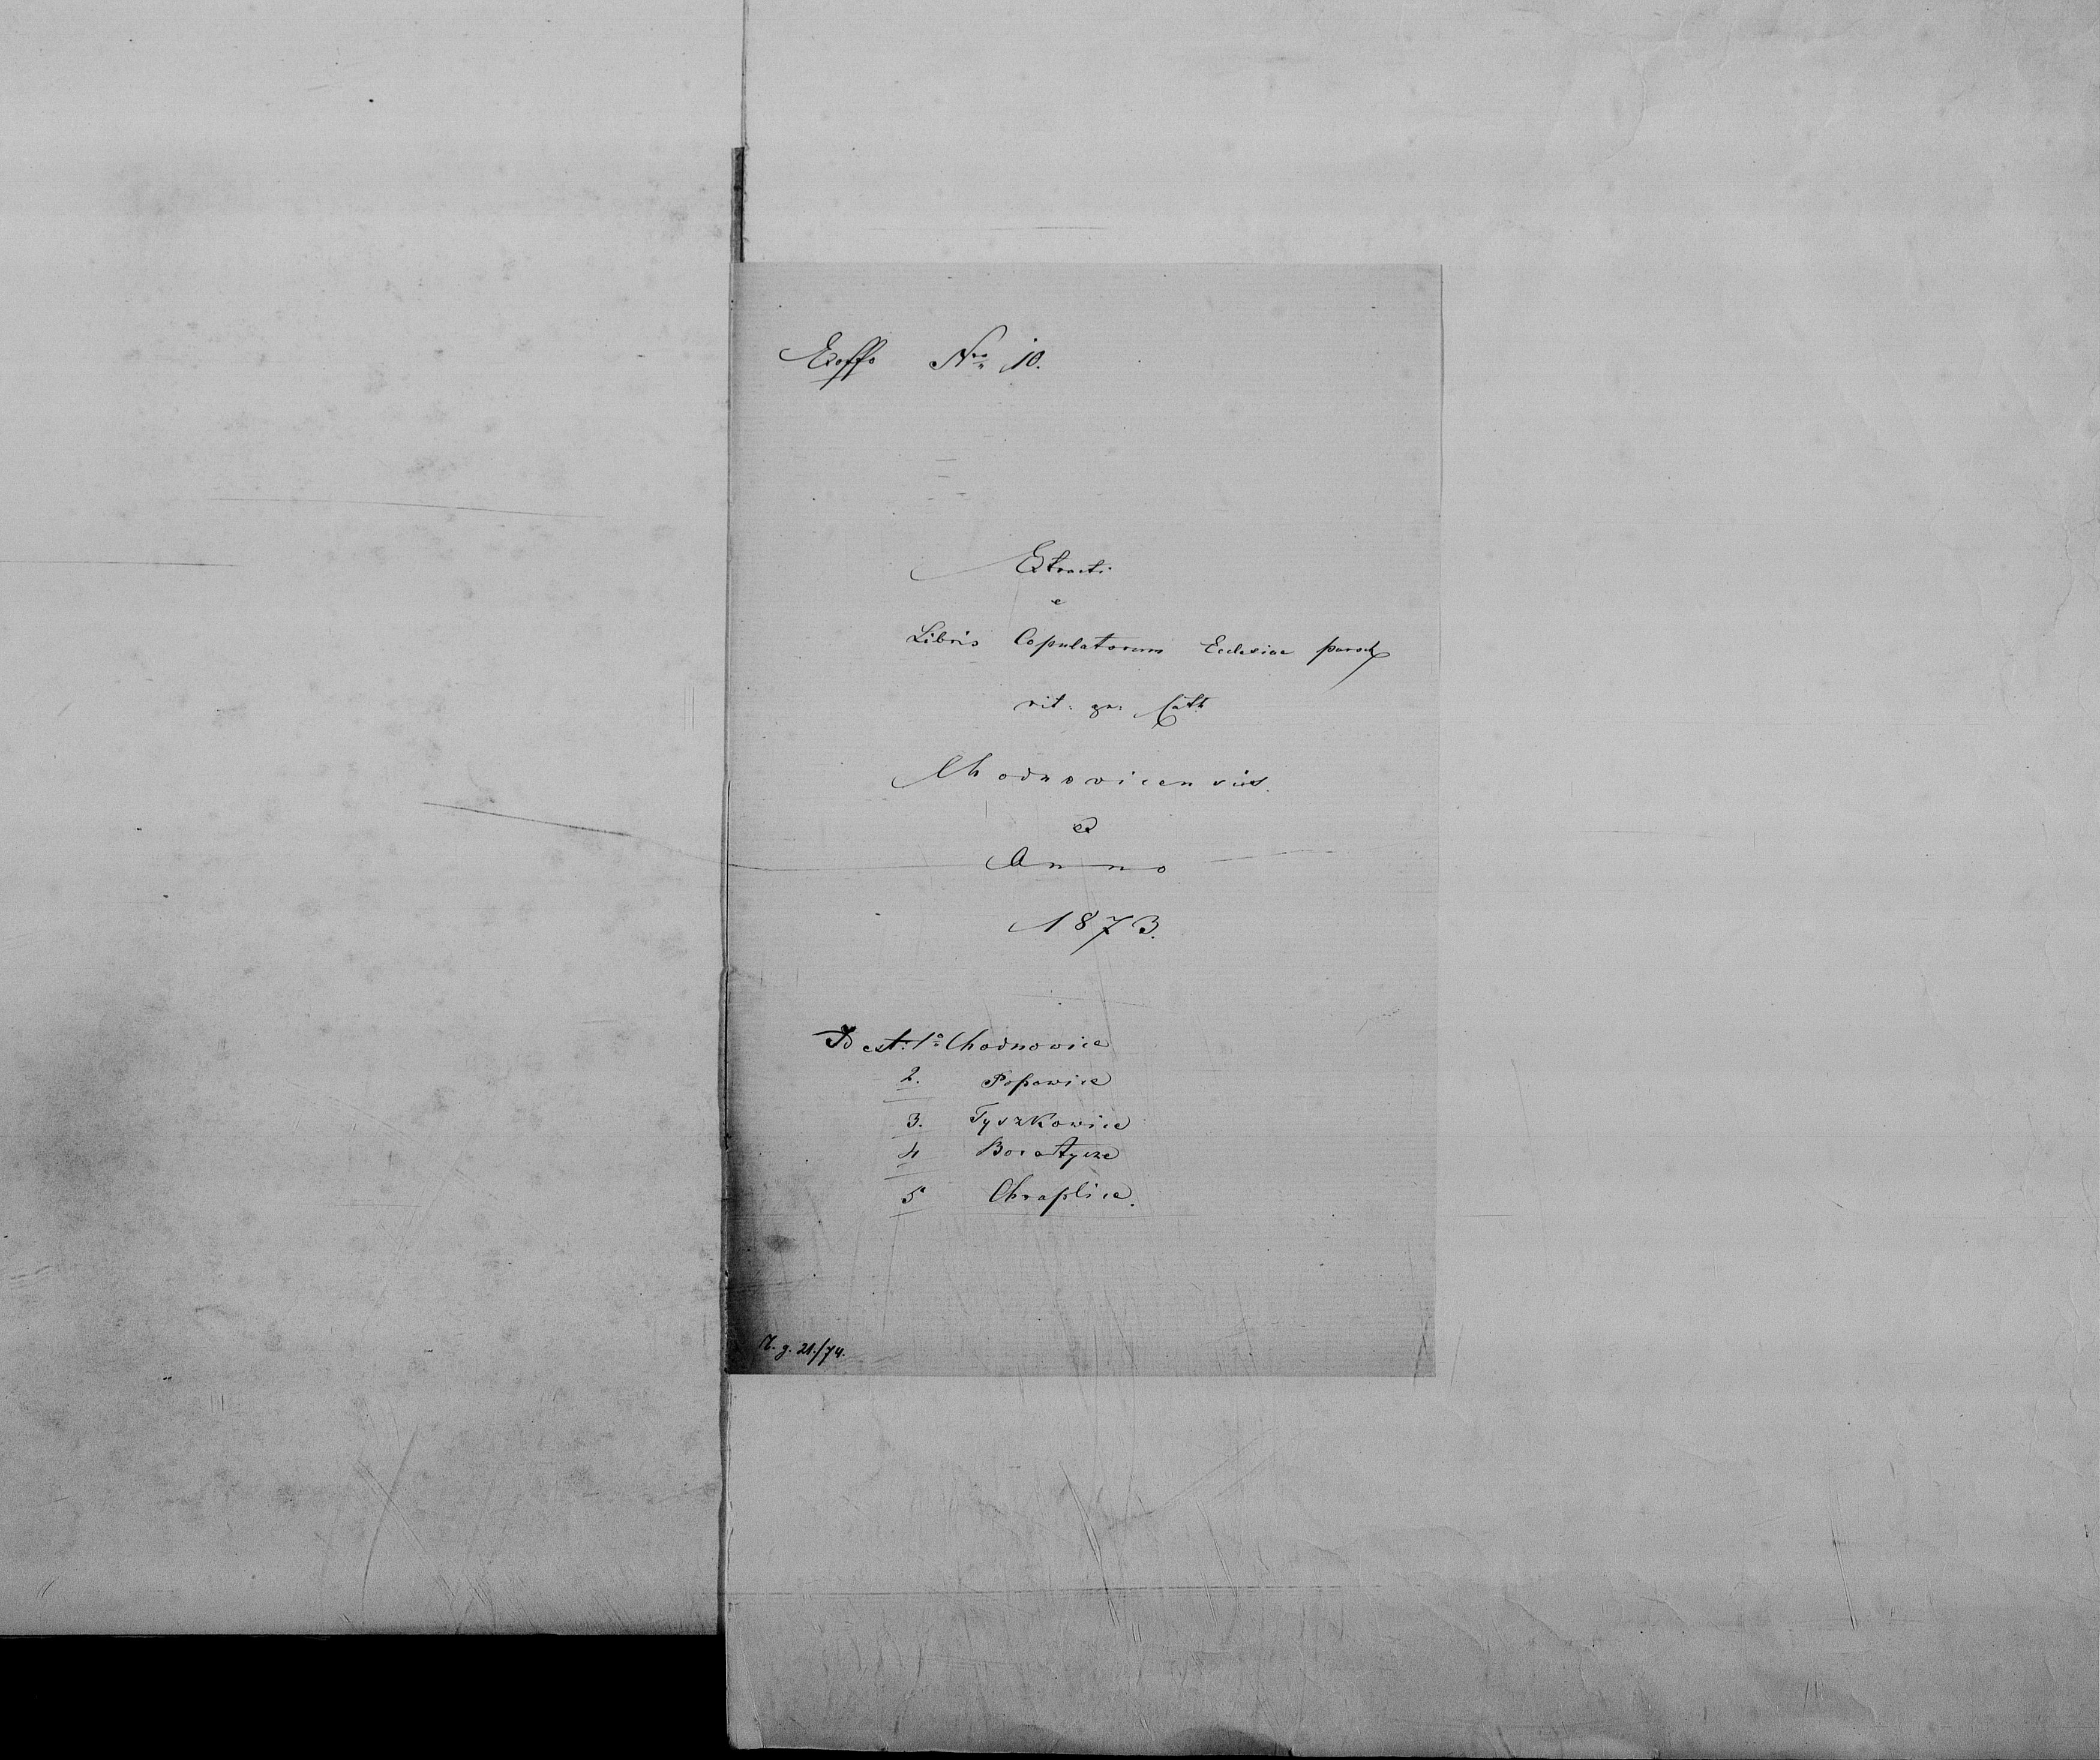 Exoffo Nro 10.
Extracti
e
Libris Copulatorum Ecclesiae paroch
rit: gr: Cath
Chodnowicensis.
ex
Anno
1873.
Id est: 1o Chodnowice
2. Popowice
3. Tyszkowice
4 Boratycze
5o Chraplice.
N. g. 21./74.